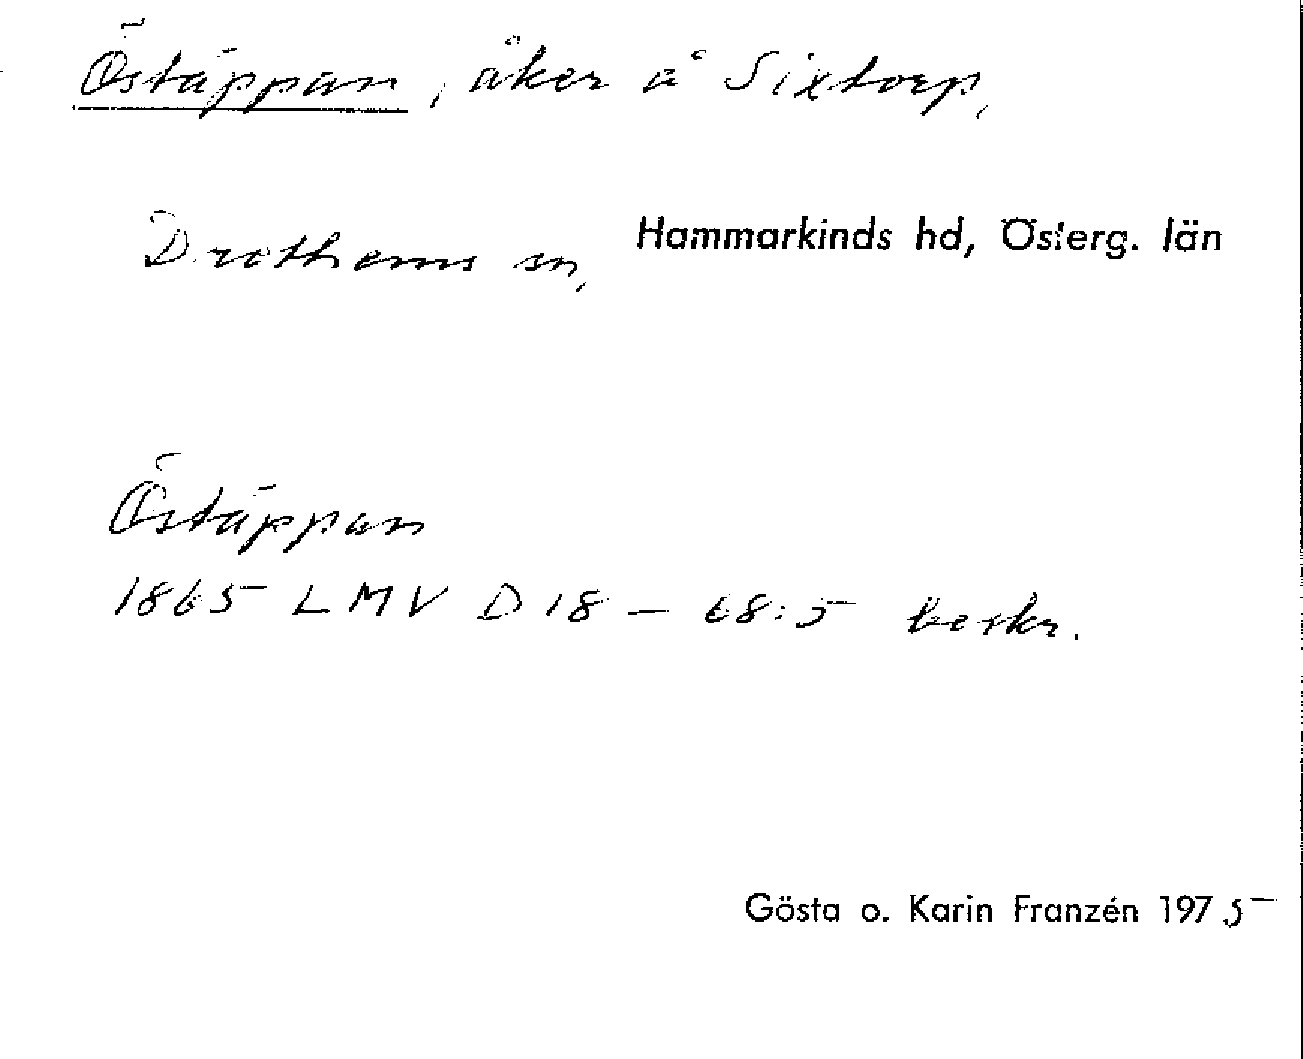 Östäppan, åker å Sixtorp,
Drothems sn, Hammarkinds hd, Österg. län
Östäppan
1865 LMV D18 – 68:5 beskr.
Gösta o. Karin Franzén 1975